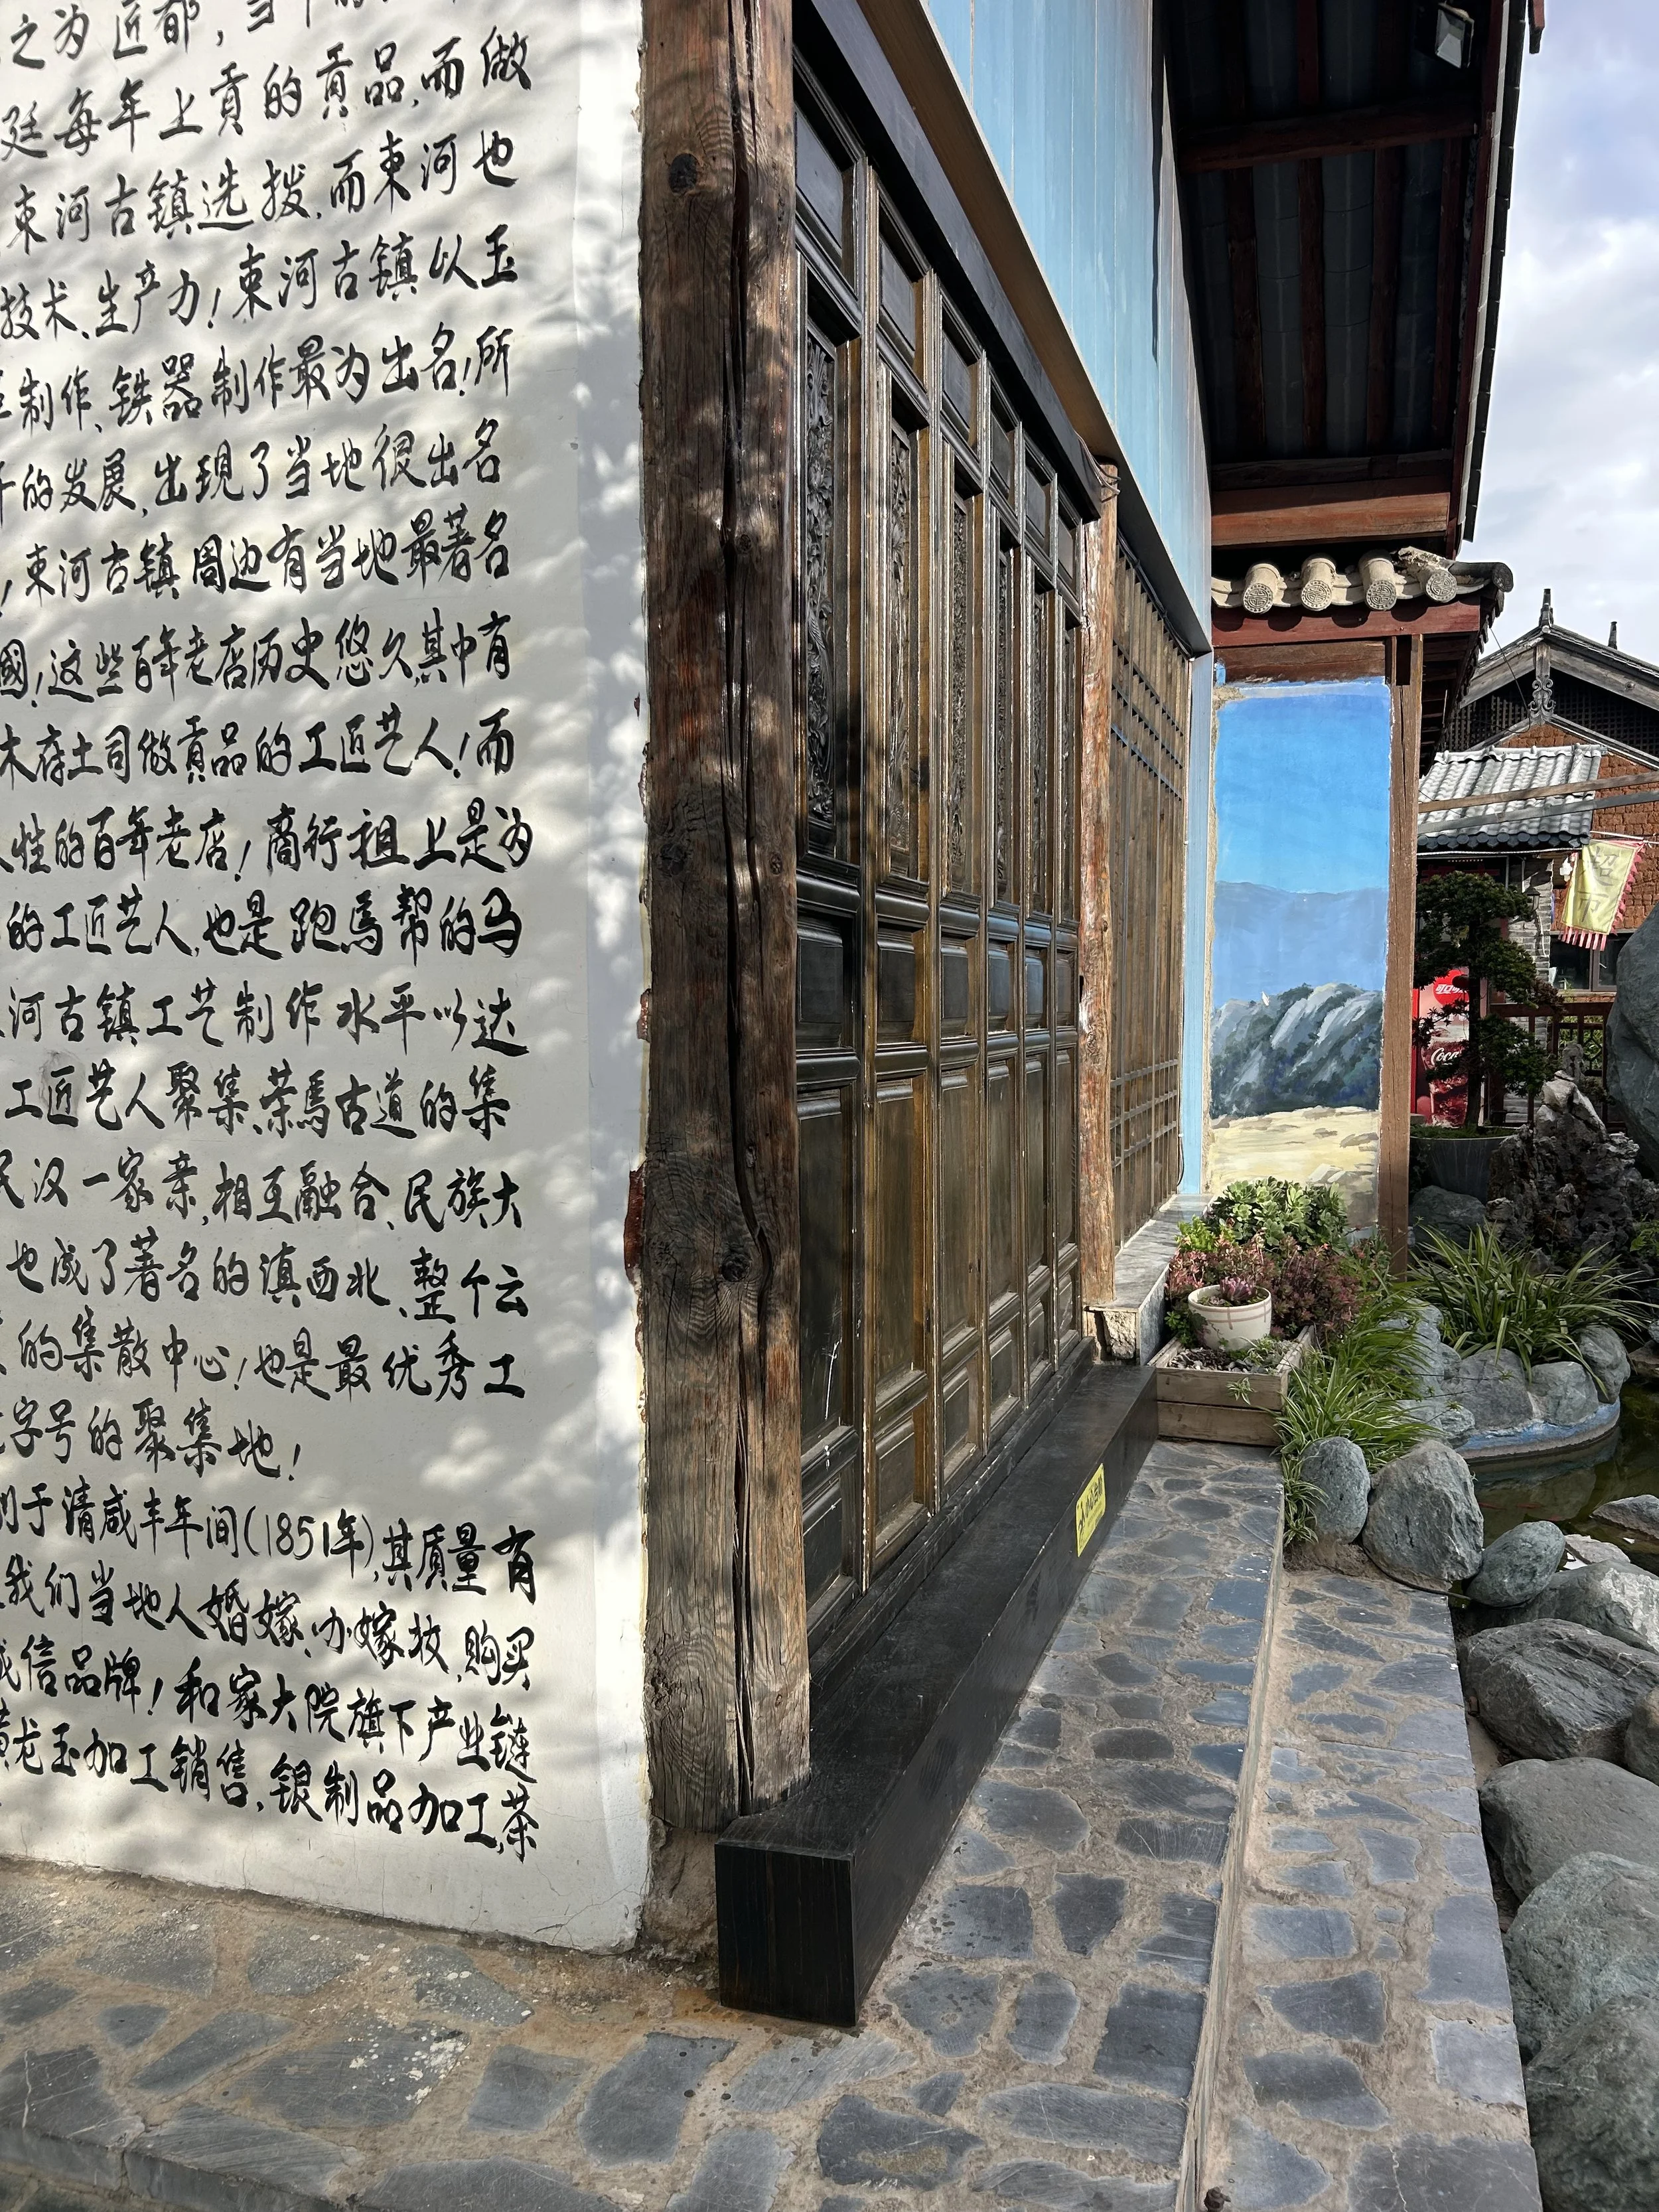 之为匠都,当
廷每年上貢的貢品,而做
束河古镇选拨,而束河也
技术、生产力!束河古镇以玉
制作、铁器制作最为出名!所
的发展,出現了当地很出名
!束河古镇周边有当地最著名
國!这些百年老店历史悠久,其中有
木府土司做貢品的工匠艺人!而
性的百年老店!商行祖上是为
的工匠艺人,也是跑馬帮的马
河古镇工艺制作水平以达
工匠艺人聚集、茶馬古道的集
民汉一家亲,相互融合、民族大
也成了著名的滇西北、整个云
的集散中心!也是最优秀工
字号的聚集地!
于清咸丰年间(1851年),其质量有
我们当地人婚嫁、办嫁妆,购买
诚信品牌!和家大院旗下产业链
黄龙玉加工销售、银制品加工、茶
Coca